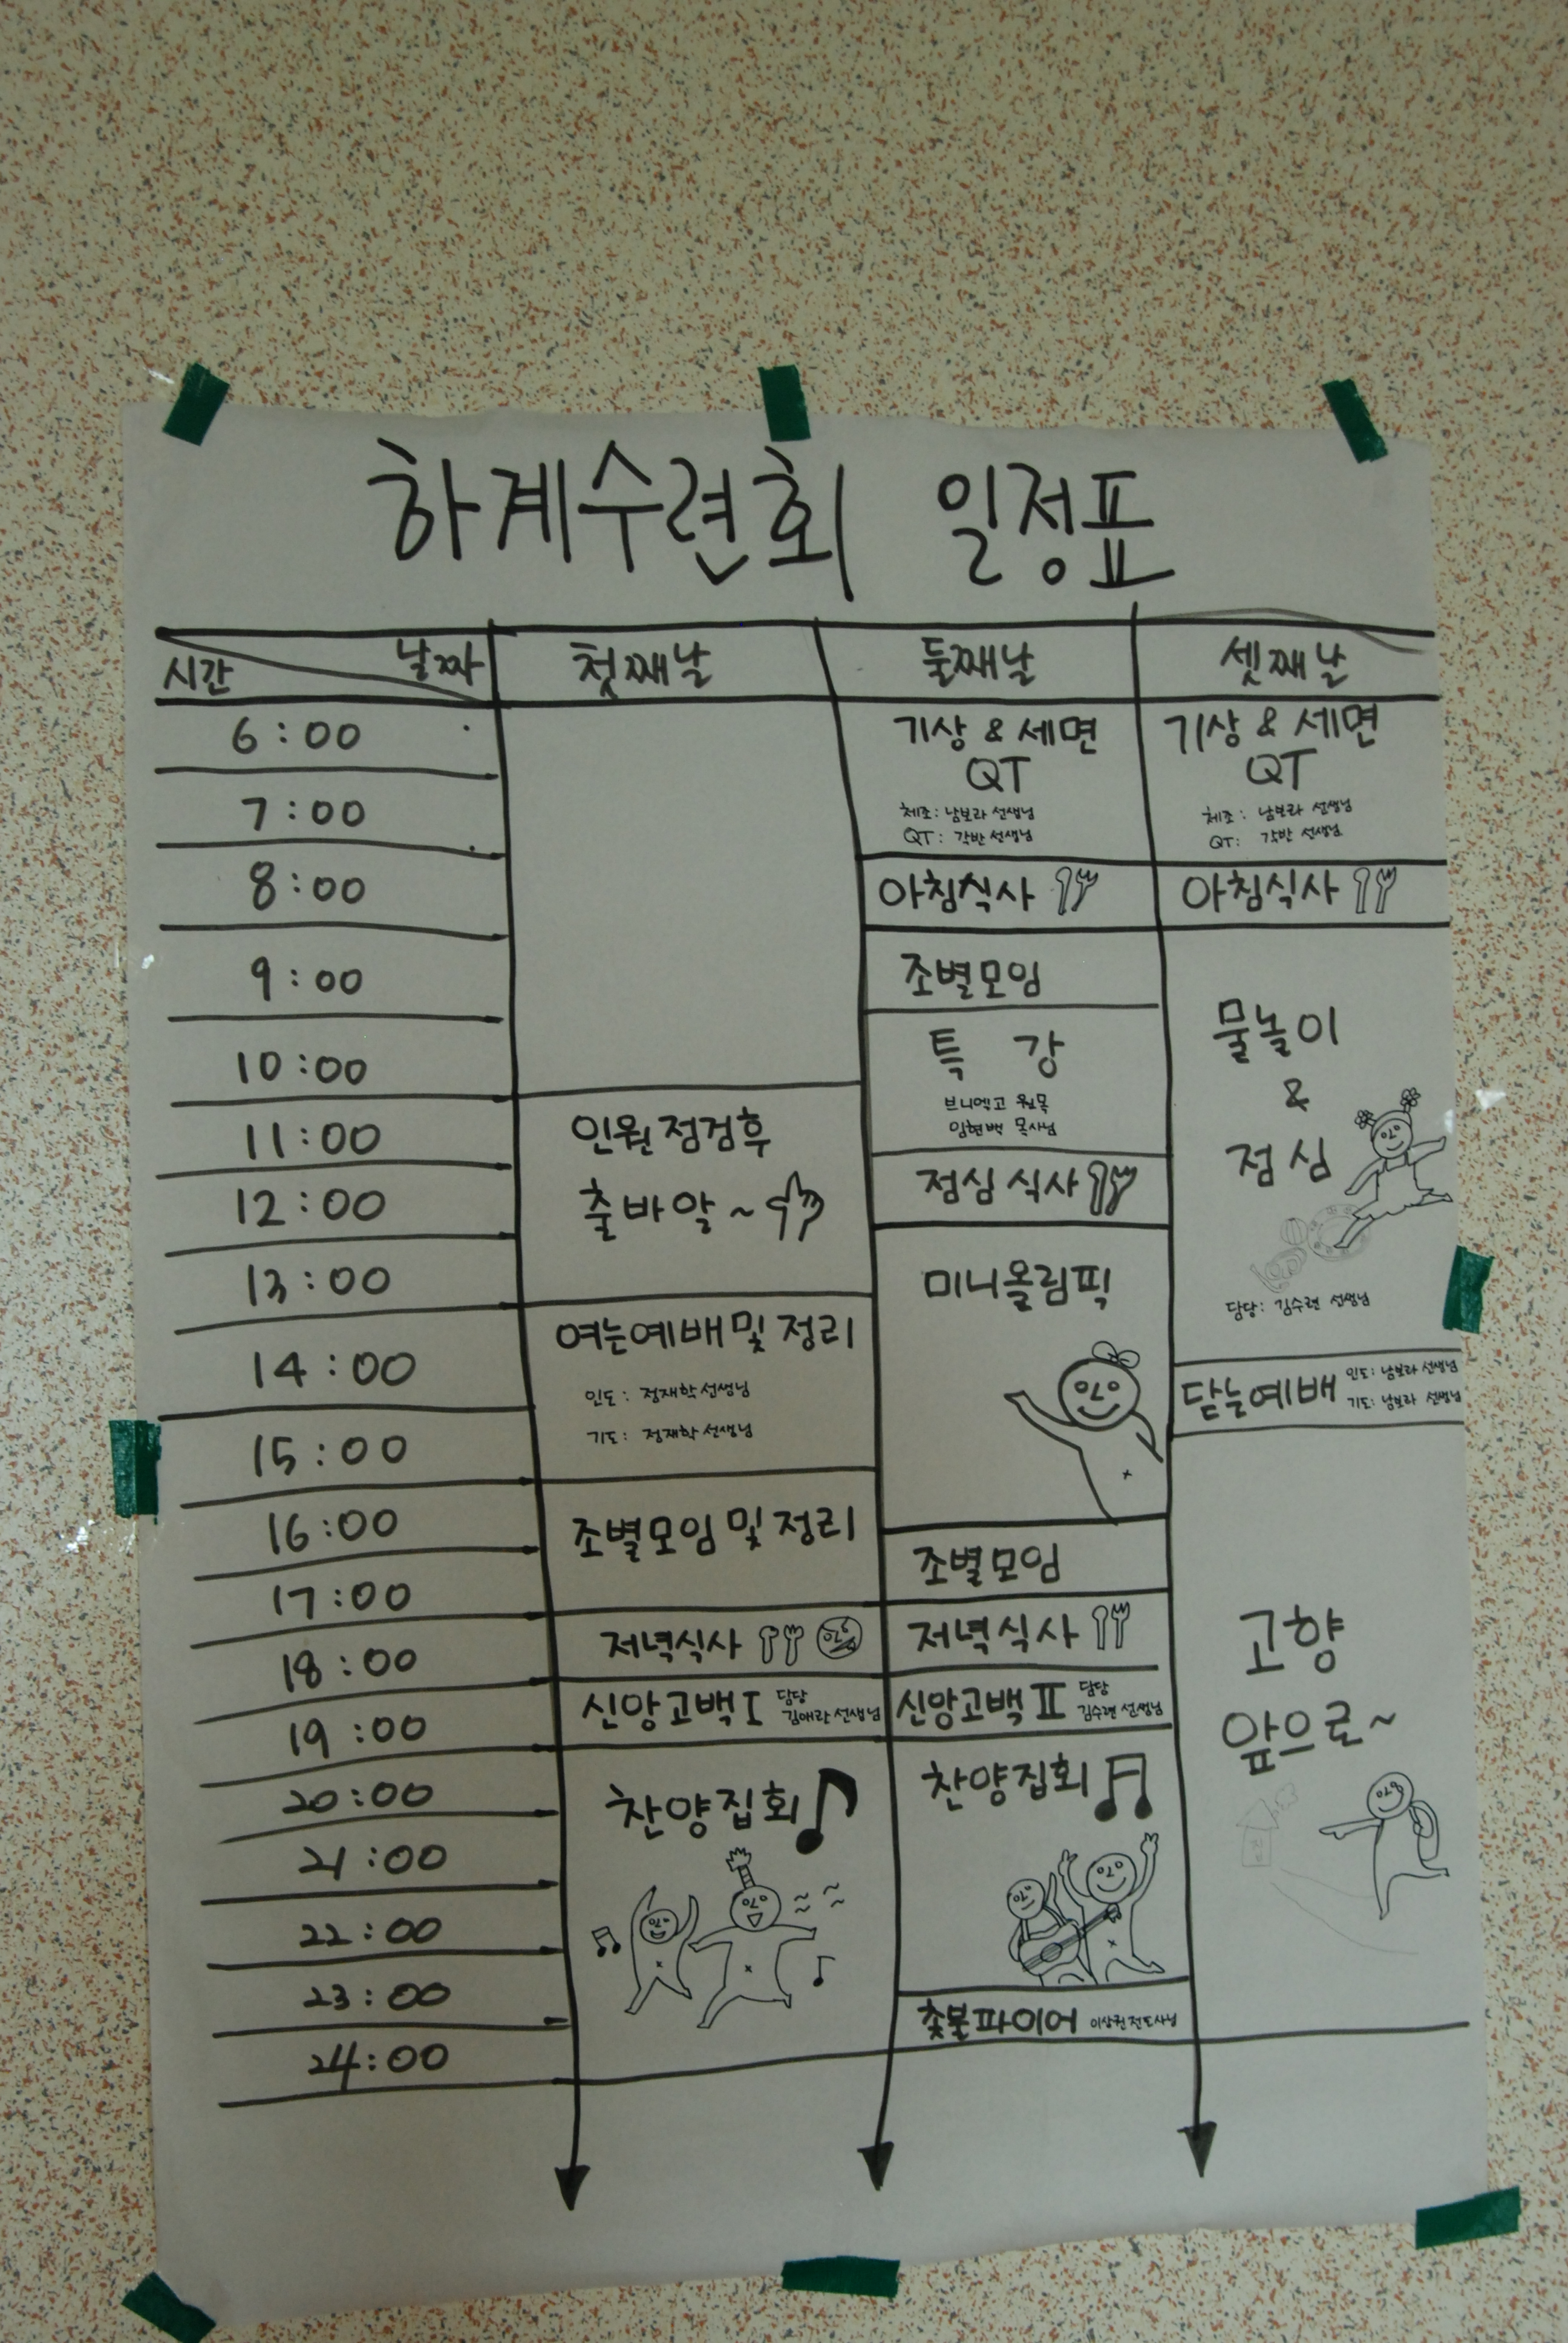 하계수련회 일정표
시간 날짜 첫째날 둘째날 셋째날
6:00
7:00
8:00
9:00
10:00
11:00
12:00
13:00
14:00
15:00
16:00
17:00
18:00
19:00
20:00
21:00
22:00
23:00
24:00
인원점검후
출바알~
여는예배 및 정리
인도: 정재학 선생님
기도: 정재학 선생님
조별모임 및 정리
저녁식사
신앙고백 I 담당
김애라 선생님
찬양집회
기상 & 세면
QT
체조: 남보라 선생님
QT: 각반 선생님
아침식사
조별모임
특 강
브니엘고 원목
임현백 목사님
점심 식사
미니올림픽
조별모임
저녁식사
신앙고백 II 담당
김수련 선생님
찬양집회
촛불파이어 이상권 전도사님
기상 & 세면
QT
체조: 남보라 선생님
QT: 각반 선생님
아침식사
물놀이
&
점심
담당: 김수련 선생님
닫는예배 인도: 남보라 선생님
기도: 남보라 선생님
고향
앞으로~